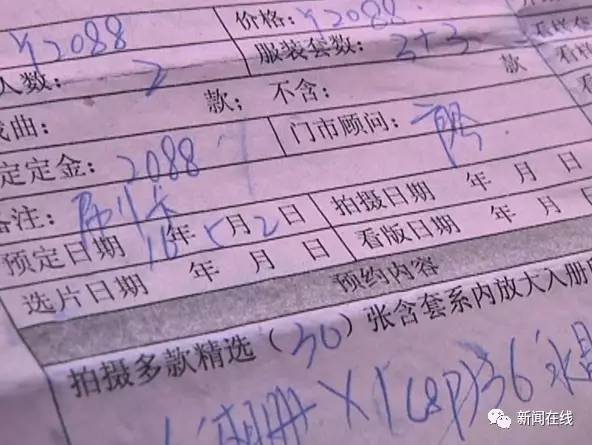 ¥2088 价格：¥2088
人数：2 服装套数：3+3 看样
戏曲： 款；不含： 款 看样套
定定金：2088 门市顾问： 看
备注：刷卡
预定日期 16年5月2日 拍摄日期 年 月 日
选片日期 年 月 日 看版日期 年 月 日
预约内容
拍摄多款精选（30）张含套系内放大入册
相册×1（8P）36 水晶
新闻在线